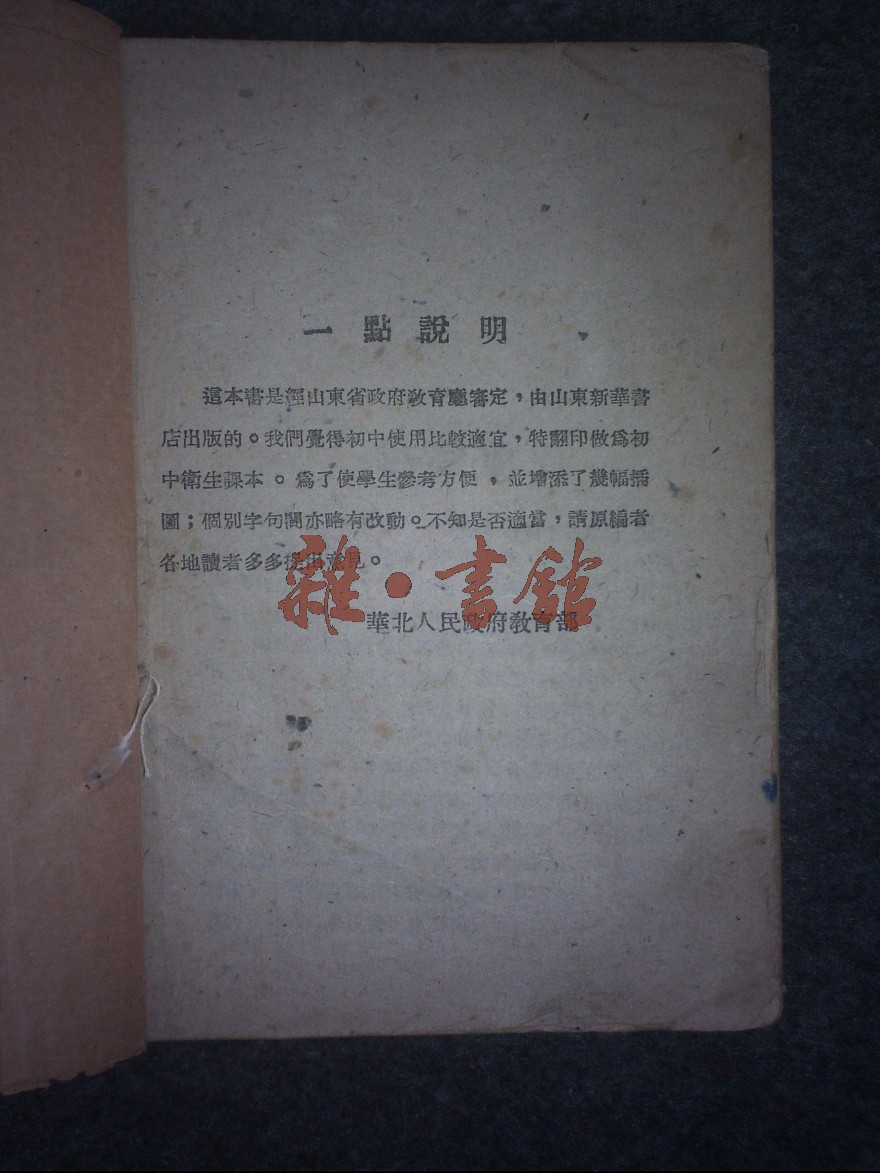 一點說明
這本書是經山東省政府教育廳審定，由山東新華書
店出版的。我們覺得初中使用比較適宜，特翻印做爲初
中衛生課本。爲了使學生參考方便，並增添了幾幅插
圖；個別字句間亦略有改動。不知是否適當，請原編者
各地讀者多多提出意見。
雜·書館
華北人民政府教育部